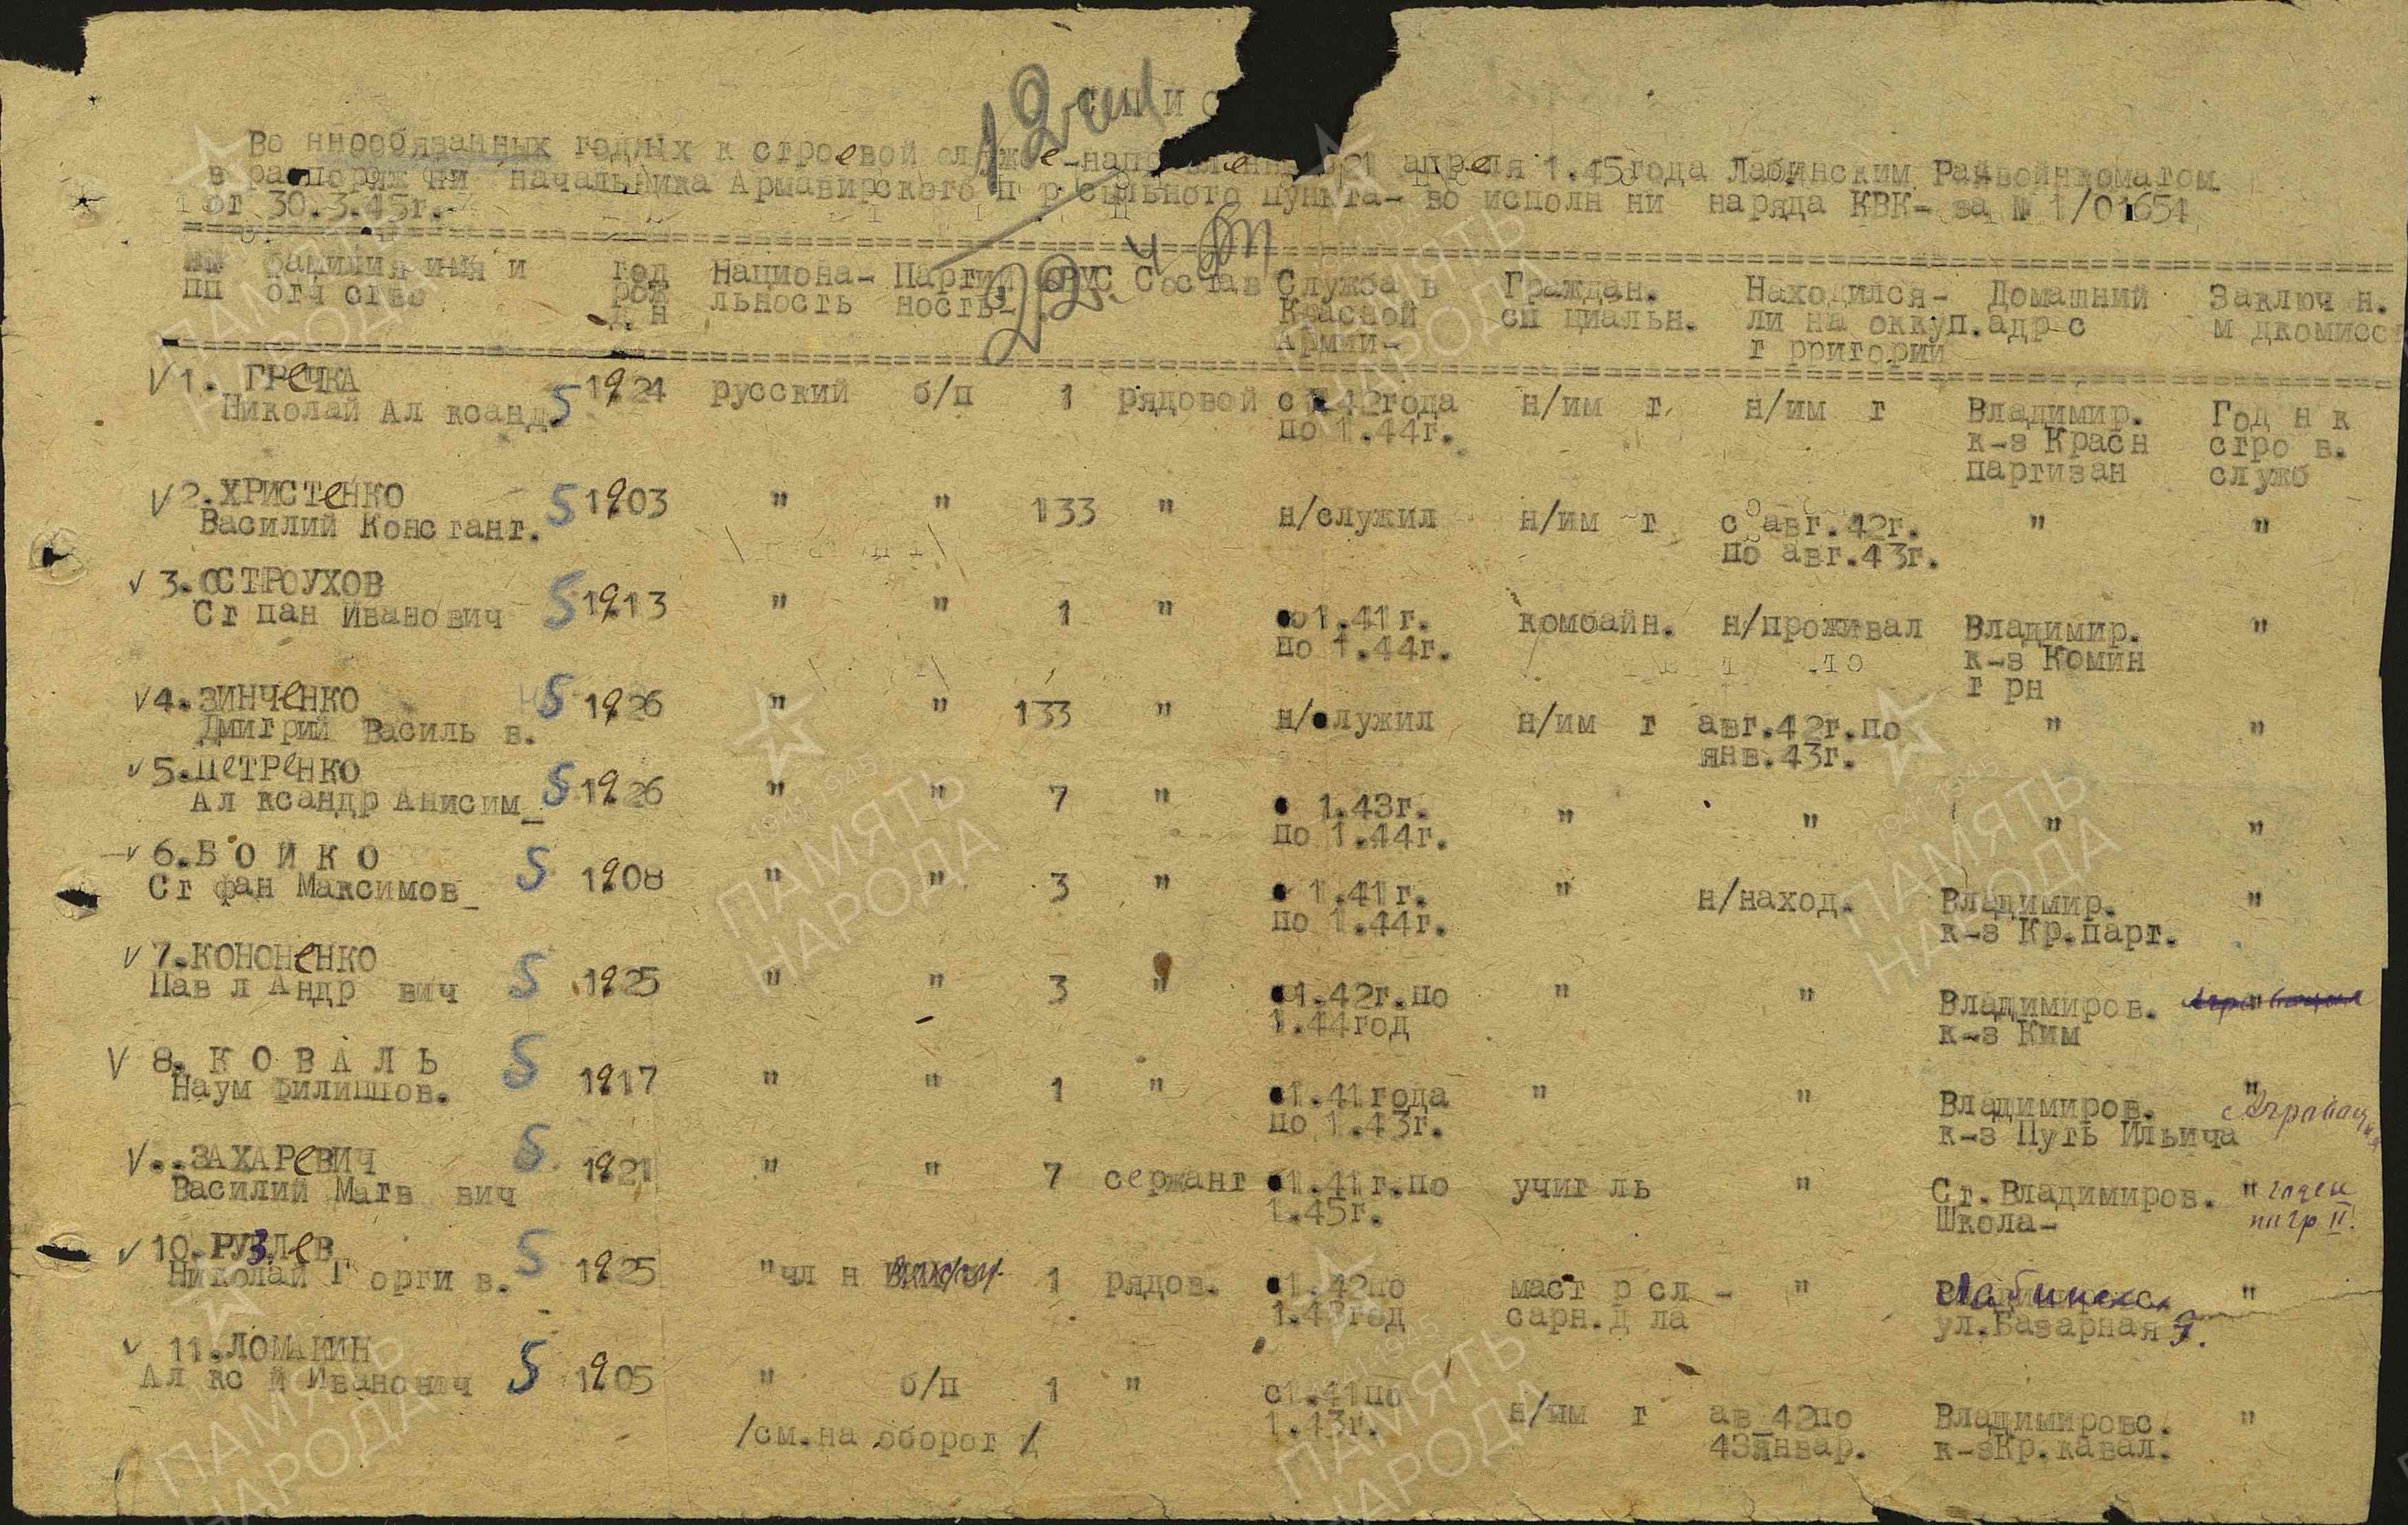 СПИС
Во ннообязанных годных к строевой службе-направленных 21 апреля 1945года Лабинским Райвоенкоматом
в распоряж ни начальника Армавирского п р сыльного пункта- во исполн ни наряда КВК- за № 1/01654
от 30.3.45г.
№№ фамилия имя и год Национа- Партий ВУС Состав Служба в Граждан. Находился- Домашний Заключ н.
пп отч ство рож льность ность- Красной сп циальн. ли на оккуп. адр с м дкомисс
д н Армии- т рритории
1. ГРеЧКА 1924 русский б/п 1 рядовой с 42года н/им т н/им т Владимир. Год н к
Николай Ал ксанд. S по 1.44г. к-з Красн стро в.
партизан служб
2. ХРИСТеНКО S 1903 " " 133 " н/служил н/им т с авг.42г. " "
Василий Констант. по авг.43г.
3. ОСТРОУХОВ S 1913 " " 1 " 1.41г. комбайн. н/проживал Владимир. "
Ст пан Иванович по 1.44г. к-з Комин
т рн
4. ЗИНЧеНКО S 1926 " " 133 " н/служил н/им т авг.42г.по " "
Дмитрий Василь в. янв.43г.
5. ПеТРеНКО S 1926 " " 7 " с 1.43г. " " " "
Ал ксандр Анисим_ по 1.44г.
6. Б О Й К О S 1908 " " 3 " с 1.41г. " н/наход. Владимир. "
Ст фан Максимов_ по 1.44г. к-з Кр.парт.
7. КОНОНеНКО S 1925 " " 3 " с1.42г.по " " Владимиров. "
Пав л Андр вич 1.44год к-з Ким
8. К О В А Л Ь S 1917 " " 1 " с1.41года " " Владимиров. "
Наум Филиппов. по 1.43г. к-з Путь Ильича
ЗАХАРеВИЧ S 1921 " " 7 сержант с1.41г.по учит ль " Ст.Владимиров. " годен
Василий Матв вич 1.45г. Школа- по гр II.
10. РУЗЛеВ S 1925 " чл н 1 рядов. с1.42по маст р сл - " Лабинск "
Николай Г орги в. 1.43год сарн.д ла ул.Базарная 9.
11. ЛОМАКИН S 1905 " б/п 1 " с1.41по н/им т ав 42по Владимировс. "
Ал кс й Иванович 1.43г. 43январ. к-зКр.кавал.
/см.на оборот /